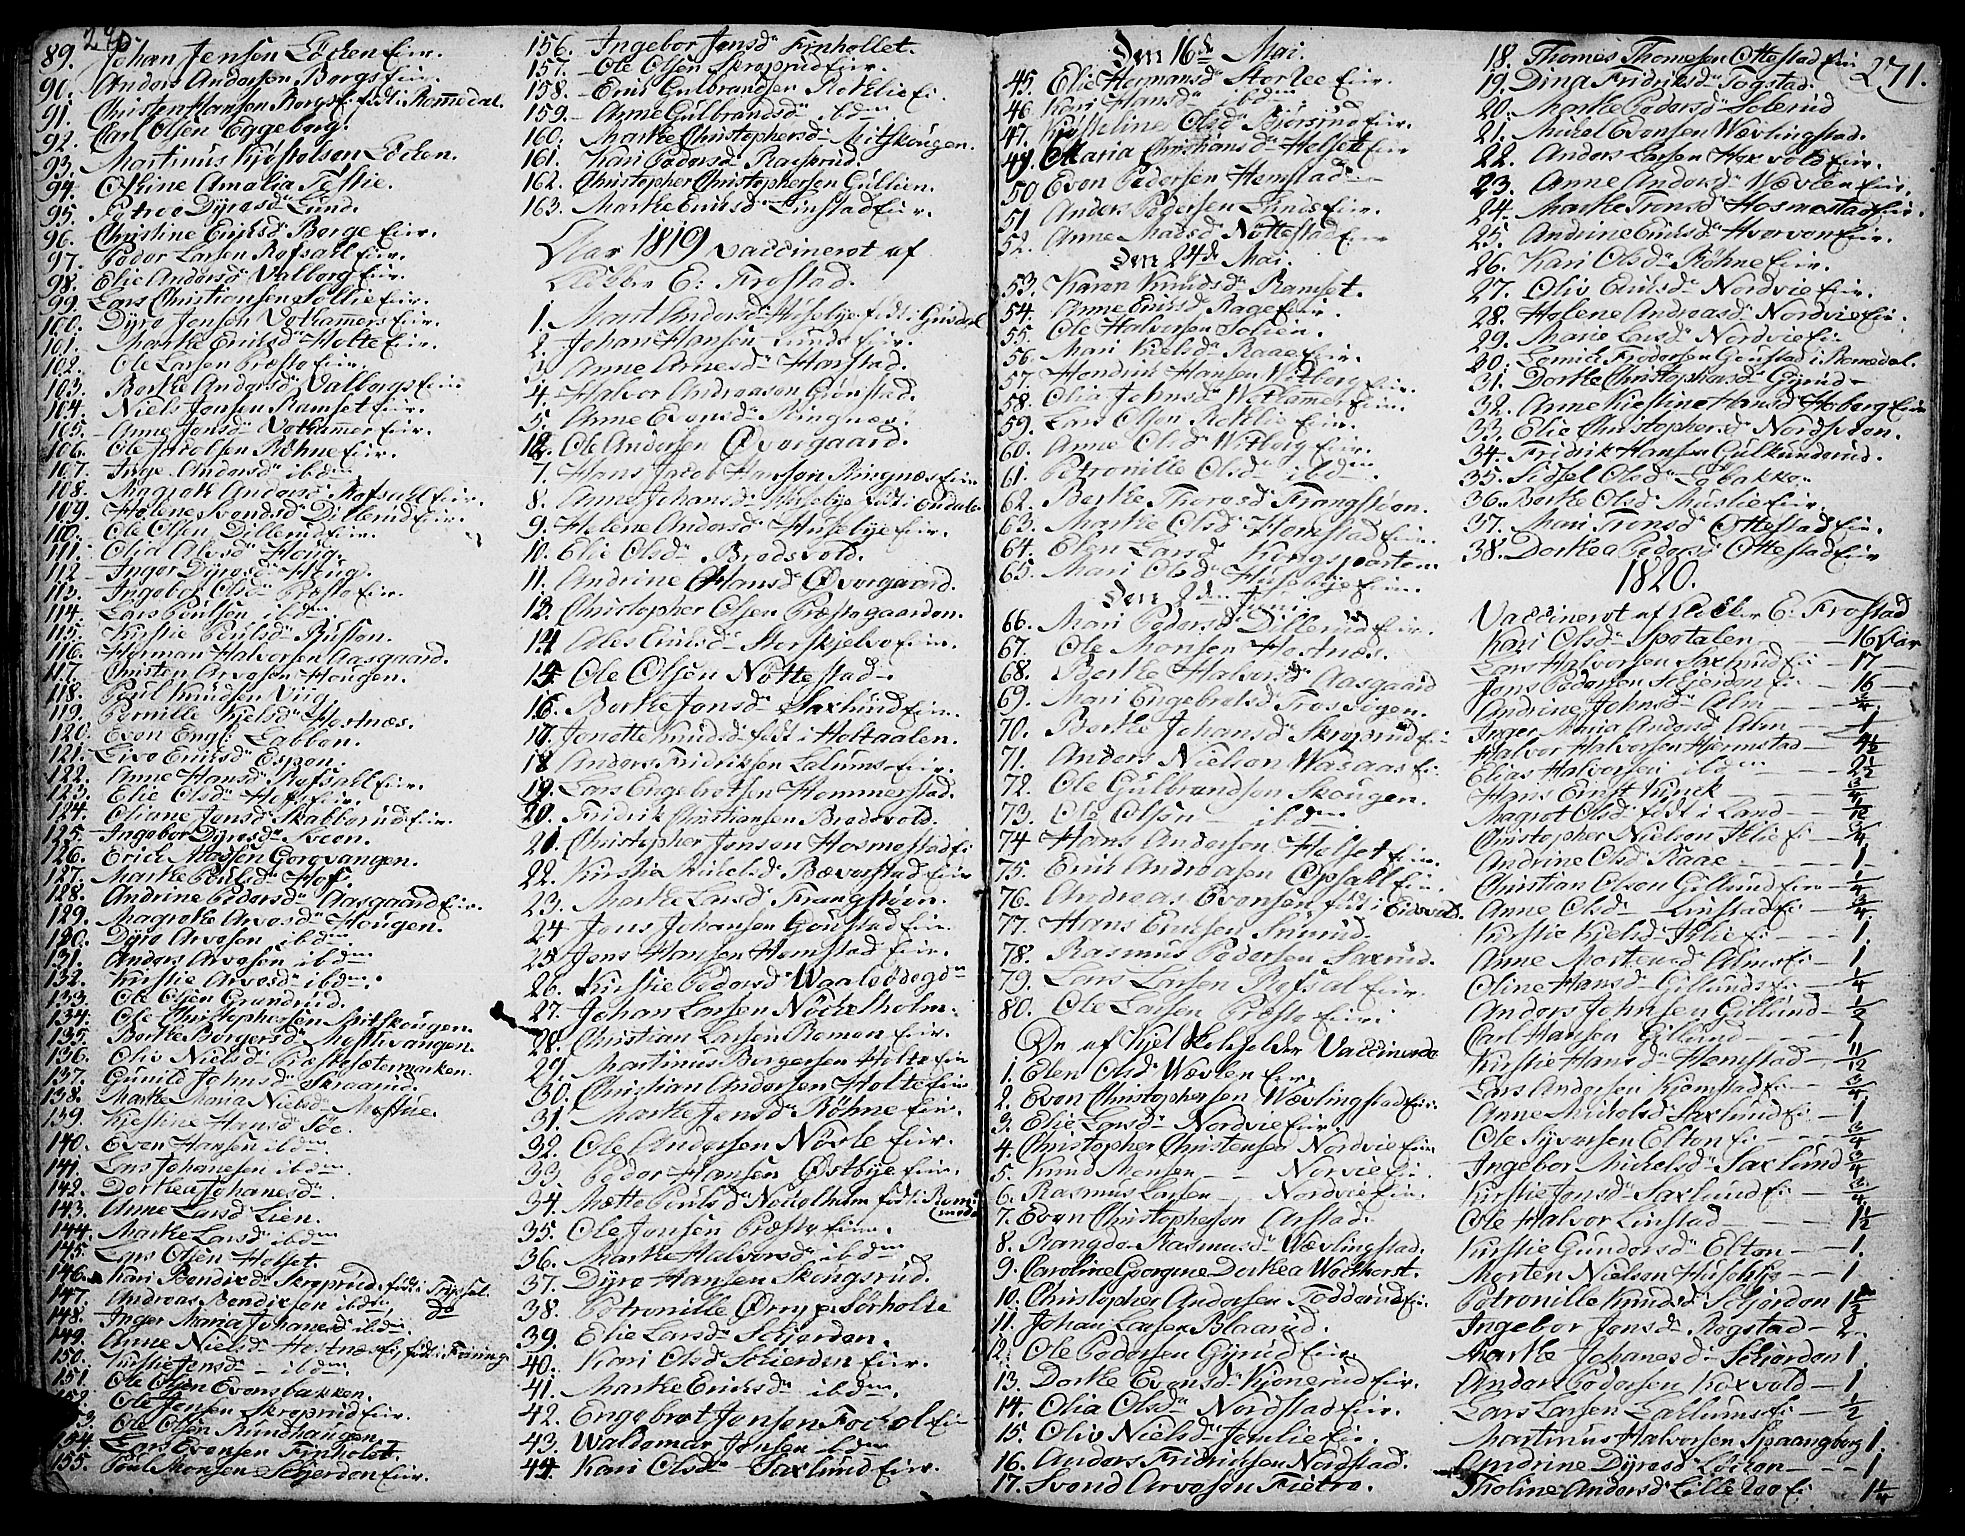 270.
89. Johan Jensen Löcken Eir.
90. Anders Andersen Borgs Eir.
91. Christen Hansen Borgs E. født i Romedal.
92. Carl Olsen Eggeberg.
93. Martinus Kjøstolsen Löcken.
94. Othine Amalia
95. Dyresd. Lund.
96. Christine Ericsd. Borge Eir.
97. Peder Larsen Rofsahl Eir.
98. Elie Andersd. Valborg Eir.
99. Lars Christiansen Sollie Eir.
100. Dyre Jensen Votkammers Eir.
101. Marthe Ericsd. Holte Eir.
102. Ole Larsen Præsto Eir.
103. Berthe Andersd. Valborgs Eir.
104. Niels Jensen Ramset Eir.
105. Anne Jensd. Votkammer Eir.
106. Ole Jocolsen Röhne Eir.
107. Inge Andersd. ibdm
108. Magrete Andersd. Rofsahl Eir.
109. Helene Svendsd. Dillerud Eir.
110. Ole Olsen Dillerud Eir.
111. Olia Alvsd. Houg.
112. Inger Dyresd. Houg.
113. Ingebor Olsd. Præsto Eir.
114. Lars Poulsen ibdm
115. Kirstie Poulsd. Busson.
116. Herman Halvorsen Aasgaard.
117. Christen Arvesen Hougen.
118. Poul Knudsen Viig.
119. Pernille Kielsd. Hostnæs.
120. Even Engl. Labben.
121. Live Ericsd. Espen.
122. Anne Hansd. Rofsahl Eir.
123. Elie Olsd. Hof Eir.
124. Eliane Jensd. Skabberud Eir.
125. Ingebor Dyresd. Kveen.
126. Erick Massen Gorgvangen.
127. Marthe Poulsd. Hof.
128. Andrine Pedersd. Aasgaard Eir.
129. Magrethe Arvesd. Hougen.
130. Dyre Arvesen ibdm
131. Anders Arvesen ibdm
132. Kirstie Arvesd. ibdm.
133. Ole Olsen Grundrud.
134. Ole Christophersen Mitskougen.
135. Berthe Borgersd. Mosthvangen.
136. Oliv Nielsd. Præstsætermarken.
137. Gunild Johnsd. Skraarud.
138. Marthe Maria Nielsd. Mostue.
139. Kjestine Hansd. Söe.
140. Even Hansen ibdm
141. Lars Johanesen ibdm
142. Dorthea Johanesd.
143. Anne Larsd. Lien.
144. Marthe Larsd. ibdm
145. Lars Olsen Holset.
146. Kari Bendixd. Skreprud. født i Trysil.
147. Andreas Bendixsen ibdm do
148. Inger Maria Johanesd. ibdm.
149. Anne Nielsd. Hostnæs E. født i Foning
150. Kirstie Jensd. ibdm
151. Ole Olsen Evensbakken.
152. Ole Jensen Skreprud Eir.
153. Ole Olsen Rundhaugen.
154. Lars Evensen Finholet.
155. Poul Monsen Schjerden Eir.
156. Ingebor Jensd. Finhollet.
157. Ole Olsen Skreprud Eir.
158. Eric Gulbrandsen Rochlie Ei.
159. Anne Gulbrandsd. ibdm
160. Marthe Christophersd. Mitskougen.
161. Kari Pedersd. Raasrud.
162. Christopher Christophersen Gullien.
163. Marthe Ericsd. Linstad Eir.
Aar 1819 vaccineret af
Klokker E: Frostad.
1. Marit Andersd. Husebye født i Gusdal
2. Johan Hansen Lunds Eir.
3. Anne Arnesd. Harstad.
4. Halvor Andreasen Grønstad.
5. Anne Evensd. Ringnes.
6. Ole Andersen Øvergaard.
7. Hans Jacob Hansen Ringnæs Eir.
8. Anne Johansd. Husebye født i
9. Helene Andersd. Husebye Eir.
10. Elie Olsd. Bredsvold.
11. Andrine Hansd. Øvergaard.
12. Christopher Olsen Præstegaarden.
14. Ales Ericsd. Storskjelve Eir.
15. Ole Olsen Nöttestad.
16. Berthe Jensd. Saxlund Eir.
17. Jenette Knudsd. født i Holtaalen.
18. Anders Fridriksen Lalums Eir.
19. Lars Engebretsen Hommerstad.
20. Fridrik Christiansen Bredsvold.
21. Christopher Jensen Hosmestad Ei.
22. Kirstie Michelsd. Bæverstad Eir.
23. Marthe Larsd. Frangstøen.
24. Jens Johansen Gonstad Eir.
25. Jens Hansen Hemstad Eir.
26. Kirstie Pedersd. Waaleödegdn
27. Johan Larsen Nöckelholm.
28. Christian Larsen Romen Eir.
29. Martinus Borgersen Holte Eir.
30. Christian Andersen Holte Eir.
31. Marthe Jensd. Röhne Eir.
32. Ole Andersen Nöste Eir.
33. Peder Hansen Østbye Eir.
34. Mætte Poulsd. Nockelholm født i
35. Ole Jensen Præsto Eir.
36. Marthe Halvorsd. ibdm
37. Dyre Hansen Skougsrud.
38. Petronille Sörholte
39. Elie Larsd. Schjerden.
40. Kari Olsd. Schierden Eir.
41. Marthe Ericsd. ibdm.
42. Engebret Jensen Fochol Ei.
43. Waldemar Jensen ibdm
44. Kari Olsd. Saxlund Eir.
271.
Den 16de Mai.
45. Elie Hermansd. Storlee Eir.
46. Kari Hansd. ibdm
47. Kjøsteline Olsd. Bjørsrud Eir.
49. Maria Christiansd. Helset Eir
50. Even Pedersen Hemstad
51. Anders Pedersen Linds Eir.
52. Anne Madsd. Nöttestad Eir
Den 24de Mai.
53. Karen Knudsd. Ramset.
54. Anne Ericsd. Rage Eir.
55. Ole Halvorsen Solien.
56. Mari Kielsd. Raae Eir.
57. Hendric Hansen Witberg Eir.
58. Olia Johnsd. Wotkamer Eir.
59. Lars Olsen Rochlie Eir.
60. Anne Olsd. Witberg Eir.
61. Petronille Olsd. ibdm
62. Berthe Thoresd. Frangstøen.
63. Marthe Olsd. Horkstad Eir.
64. Elen Larsd. Kongsparten.
65. Mari Olsd. Husebye Eir.
Den 2den Juni.
66. Mari Pedersd. Dillerud Eir.
67. Ole Monsen Hostnæs.
68. Berthe Halvorsd. Aasgaard
69. Mari Engebretsd. Fros Eegen.
70. Berthe Johansd. Skreprud Ei
71. Anders Nielsen Waraas Ei.
72. Ole Gulbrandsen Skougen.
73. Ole Olsen ibdm
74. Hans Andersen Helset Eir.
75. Erik Andreasen Opsahl Eir.
76. Andreas Evensen født i Eidsvold.
77. Hans Ericsen Linrud.
78. Rasmus Pedersen Saxrud.
79. Lars Larsen Rofsal Eir.
80. Ole Larsen Præsto Eir.
De af Kjel Kokholder Vaccinerede
1. Elen Olsd. Wæxlen Eir.
2. Even Christophersen Wæxlingstad Eir.
3. Elie Larsd. Nordvie Eir.
4. Christopher Christensen Nordvie Eir.
5. Knud Monsen Norvie Ei.
6. Rasmus Larsen Nordvie Eir.
7. Even Christophersen Arstad.
8. Rangde Rasmusd. Wæxlingstad.
9. Caroline Georgine Dorthea Wedthorst.
10. Christopher Andersen Todderud Eir.
11. Johan Larsen Blaarud.
12. Ole Pedersen Gjørud Eir.
13. Dorthe Evensd. Kjønerud Eir.
14. Olia Olsd. Nordstad Eir.
15. Oliv Nielsd. Jonlie Ei.
16. Anders Fridriksen Nordstad.
17. Svend Arvesen Fietre.
18. Thomes Thomesen Ottestad Eir
19. Dina Fridriksd. Togstad.
20. Marthe Pedersd. Solerud
21. Mikel Evensen Wæxlingstad.
22. Anders Larsen Hexvold Eir.
23. Anne Andersd. Wæxlen Eir.
24. Marthe Tronsd. Hosmestad Eir.
25. Andrine Ericsd. Hverven Eir.
26. Kari Olsd. Röhne Eir.
27. Oliv Ericsd. Nordvie Eir.
28. Helene Andreasd. Nordvie Eir.
29. Marie Larsd. Nordvie Ei
20. Lomick Frodersen Gonstad i Romedal.
31. Dorthe Christophersd. Gjørud
32. Anne Kiestine Hansd. Hoberg Eir
33. Elie Christophersd. Nordsveen.
34. Fridrik Hansen Gulkundrud.
35. Sidsel Olsd. Løbakke.
36. Berthe Olsd. Muslie Eir.
37. Mari Tronsd. Ottestad Eir.
38. Dorthea Pedersd. Ottestad Eir
1820.
Vaccineret af Klokker E: Frostad
Kari Olsd. Spetalen — 16 Aar
Lars Halvorsen Saxlund Ei — 17
Jens Pedersen Schjerden Ei — 16
Andrine Johnsd. Alm — 3/4
Inger Maria Andersd. Alm — 1
Halvor Halvorsen Hjermstad — 4 1/2
Elias Halvorsen ibdm — 2 1/2
Hans Ernst Kinck — 3/4
Magret Olsd. født i Land — 1/12
Christopher Nielsen Ihlie Ei — 3/4
Andrine Olsd. Raae — 1
Christian Olsen Gillund Eir — 1/4
Anne Olsd. Linstad Ei — 3/4
Kirstie Kielsd. Ihlie Ei — 1
Anne Mortensd. Alms Ei — 1
Oline Hansd. Gillunds Ei — 1/4
Anders Johnsen Gillund — 1/2
Carl Hansen Gillund — 1
Kirstie Hansd. Hemstad — 11/12
Lars Andersen Kjemstad Ei — 3/4
Anne Michelsd. Saxlund Ei — 1
Ole Syversen Elton Ei — 3/4
Ingebor Michelsd. Saxlund 3/4
Kirstie Jensd. Saxlund Ei — 3/4
Ole Halvor Linstad — 1 1/2
Kirstie Gundersd. Elton — 1
Morten Nielsen Husebye — 1
Petronille Knudsd. Schjerden 1 1/2
Ingebor Jensd. Rogstad — 2
Marthe Johanesd. Schjerden 1
Anders Pedersen Koxvold — 1
Lars Larsen Lallums Ei — 1/2
Martinus Halvorsen Spaangberg 1
Andrine Dyresd. Löcken — 1
Tholine Andersd. Lille Ree Ei 1 1/4